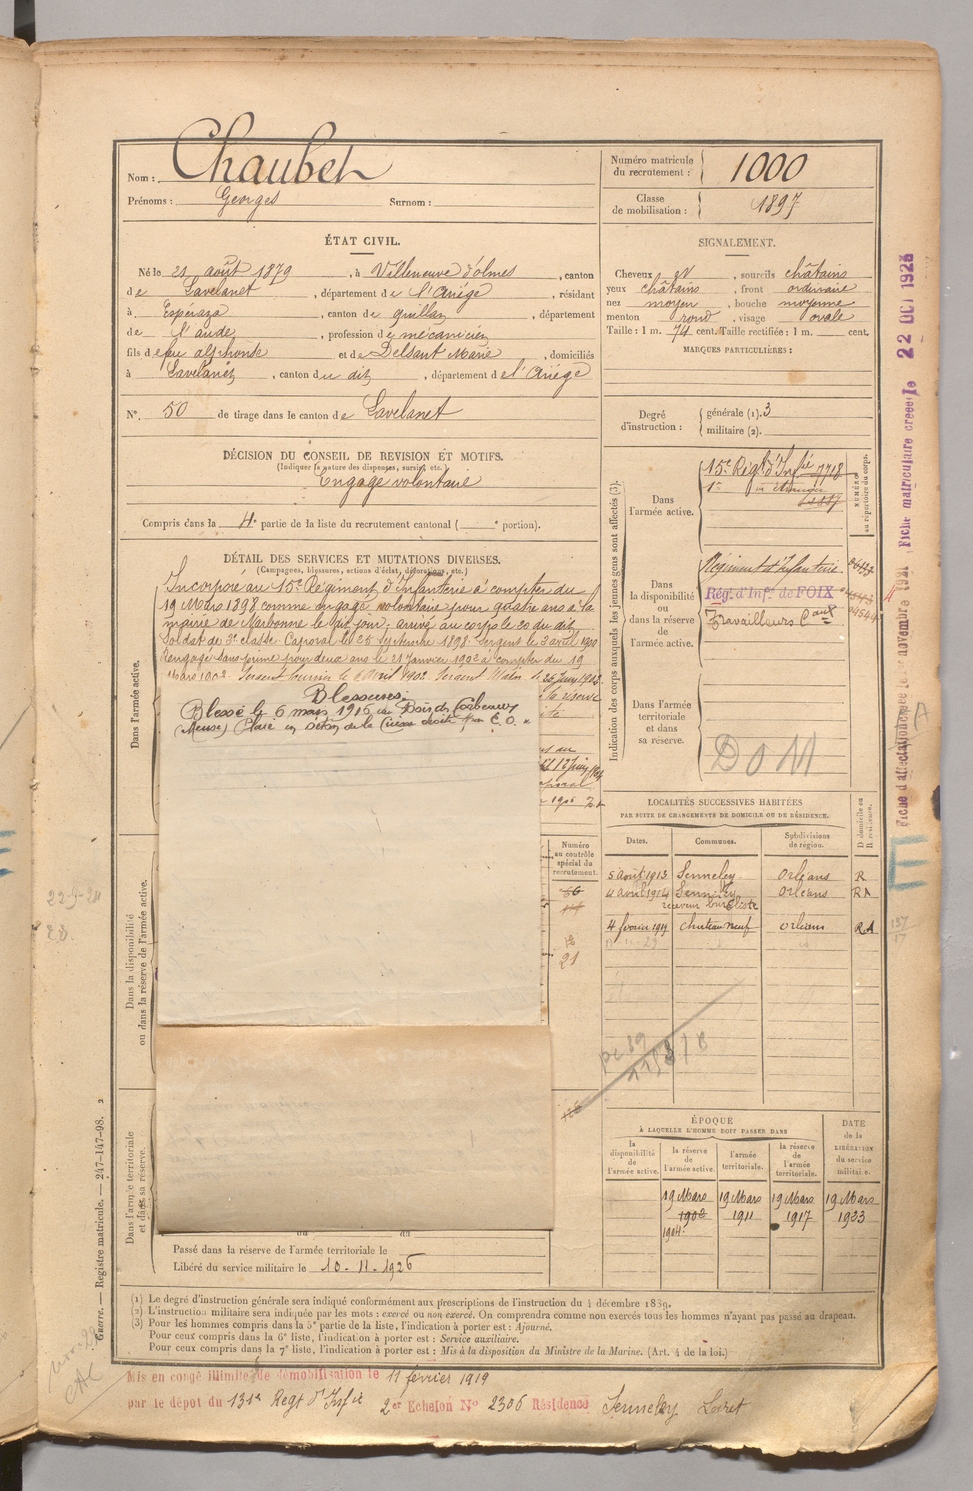 Nom : Chaubet
Prénoms : Georges Surnom :
ÉTAT CIVIL.
Né le 21 août 1879, à Villeneuve d'olmes, canton
de Lavelanet, département de l'Ariège, résidant
à Espéraza, canton de quillan, département
de l'aude, profession de mécanicien
fils de feu alphonse et de Delsant Marie, domiciliés
à Lavelanet, canton du dit, département de l'Ariège
N°. 50 de tirage dans le canton de Lavelanet
DÉCISION DU CONSEIL DE REVISION ET MOTIFS.
(Indiquer la nature des dispenses, sursis, etc.)
Engagé volontaire
Compris dans la 4e partie de la liste du recrutement cantonal ( e portion).
DÉTAIL DES SERVICES ET MUTATIONS DIVERSES.
(Campagnes, blessures, actions d'éclat, décorations, etc.)
Incorporé au 15e Régiment d'Infanterie à compter du
19 Mars 1898 comme engagé volontaire pour quatre ans à la
mairie de Narbonne le dit jour, arrivé au corps le 20 du dit
Soldat de 2e classe. Caporal le 25 septembre 1898. Sergent le 3 avril 1900
Rengagé sans prime pour deux ans le 21 Janvier 1902 à compter du 19
Mars 1902. Sergent fourrier le 6 Avril 1902. Sergent le 26 Juin 1902
Blessures.
Blessé le 6 mars 1916 au Bois des Corbeaux
(Meuse) Plaie en séton de la Cuisse droite par E. O.
la réserve
au
12 Juin 1904
caporal
1906
Dans l'armée active.
Dans la disponibilité
ou dans la réserve de l'armée active.
Dans l'armée territoriale
et dans sa réserve.
Numéro
au contrôle
spécial du
recrutement.
21
Passé dans la réserve de l'armée territoriale le
Libéré du service militaire le 10-11-1926
Numéro matricule
du recrutement : 1000
Classe
de mobilisation : 1897
SIGNALEMENT.
Cheveux et, sourcils châtains
yeux châtains, front ordinaire
nez moyen, bouche moyenne
menton rond, visage ovale
Taille : 1 m. 74 cent. Taille rectifiée : 1 m. cent.
MARQUES PARTICULIÈRES :
Degré
d'instruction :
générale (1). 3
militaire (2).
Indication des corps auxquels les jeunes gens sont affectés (3).
NUMÉRO
au répertoire du corps.
Dans
l'armée active.
15e Régt d'Infie 7718
1er étranger
Dans
la disponibilité
ou
dans la réserve
de
l'armée active.
Régiment d'Infanterie
Rég. d'Inf. de FOIX
Travailleurs Caux
Dans l'armée
territoriale
et dans
sa réserve.
DOM
LOCALITÉS SUCCESSIVES HABITÉES
PAR SUITE DE CHANGEMENTS DE DOMICILE OU DE RÉSIDENCE.
Dates. Communes. Subdivisions de région. D domicile ou R résidence.
5 août 1913 Senneley Orléans R
4 août 1914 Senneley Orléans RA
receveur buraliste
4 février 1919 chateauneuf Orléans RA
ÉPOQUE
À LAQUELLE L'HOMME DOIT PASSER DANS
DATE
de la
LIBÉRATION
du service
militaire.
la
disponibilité
de
l'armée active.
la réserve
de
l'armée active.
l'armée
territoriale.
la réserve
de
l'armée
territoriale.
19 Mars 19 Mars 19 Mars 19 Mars
1902 1911 1917 1923
1904
(1) Le degré d'instruction générale sera indiqué conformément aux prescriptions de l'instruction du 4 décembre 1889.
(2) L'instruction militaire sera indiquée par les mots : exercé ou non exercé. On comprendra comme non exercés tous les hommes n'ayant pas passé au drapeau.
(3) Pour les hommes compris dans la 5e partie de la liste, l'indication à porter est : Ajourné.
Pour ceux compris dans la 6e liste, l'indication à porter est : Service auxiliaire.
Pour ceux compris dans la 7e liste, l'indication à porter est : Mis à la disposition du Ministre de la Marine. (Art. 4 de la loi.)
Mis en congé illimité de démobilisation le 11 février 1919
par le dépot du 131e Regt d'Infie 2er Echelon No 2306 Résidence Senneley Loiret
Guerre. — Registre matricule. — 247-147-98. 2
Fiche matriculaire créée le 22 OCT 1923
22-9-24